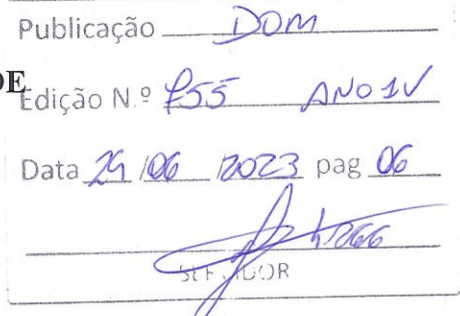 Publicação DOM
DE
Edição N.º 855 ANO IV
Data 29 /06 /2023 pag 06
SERVIDOR